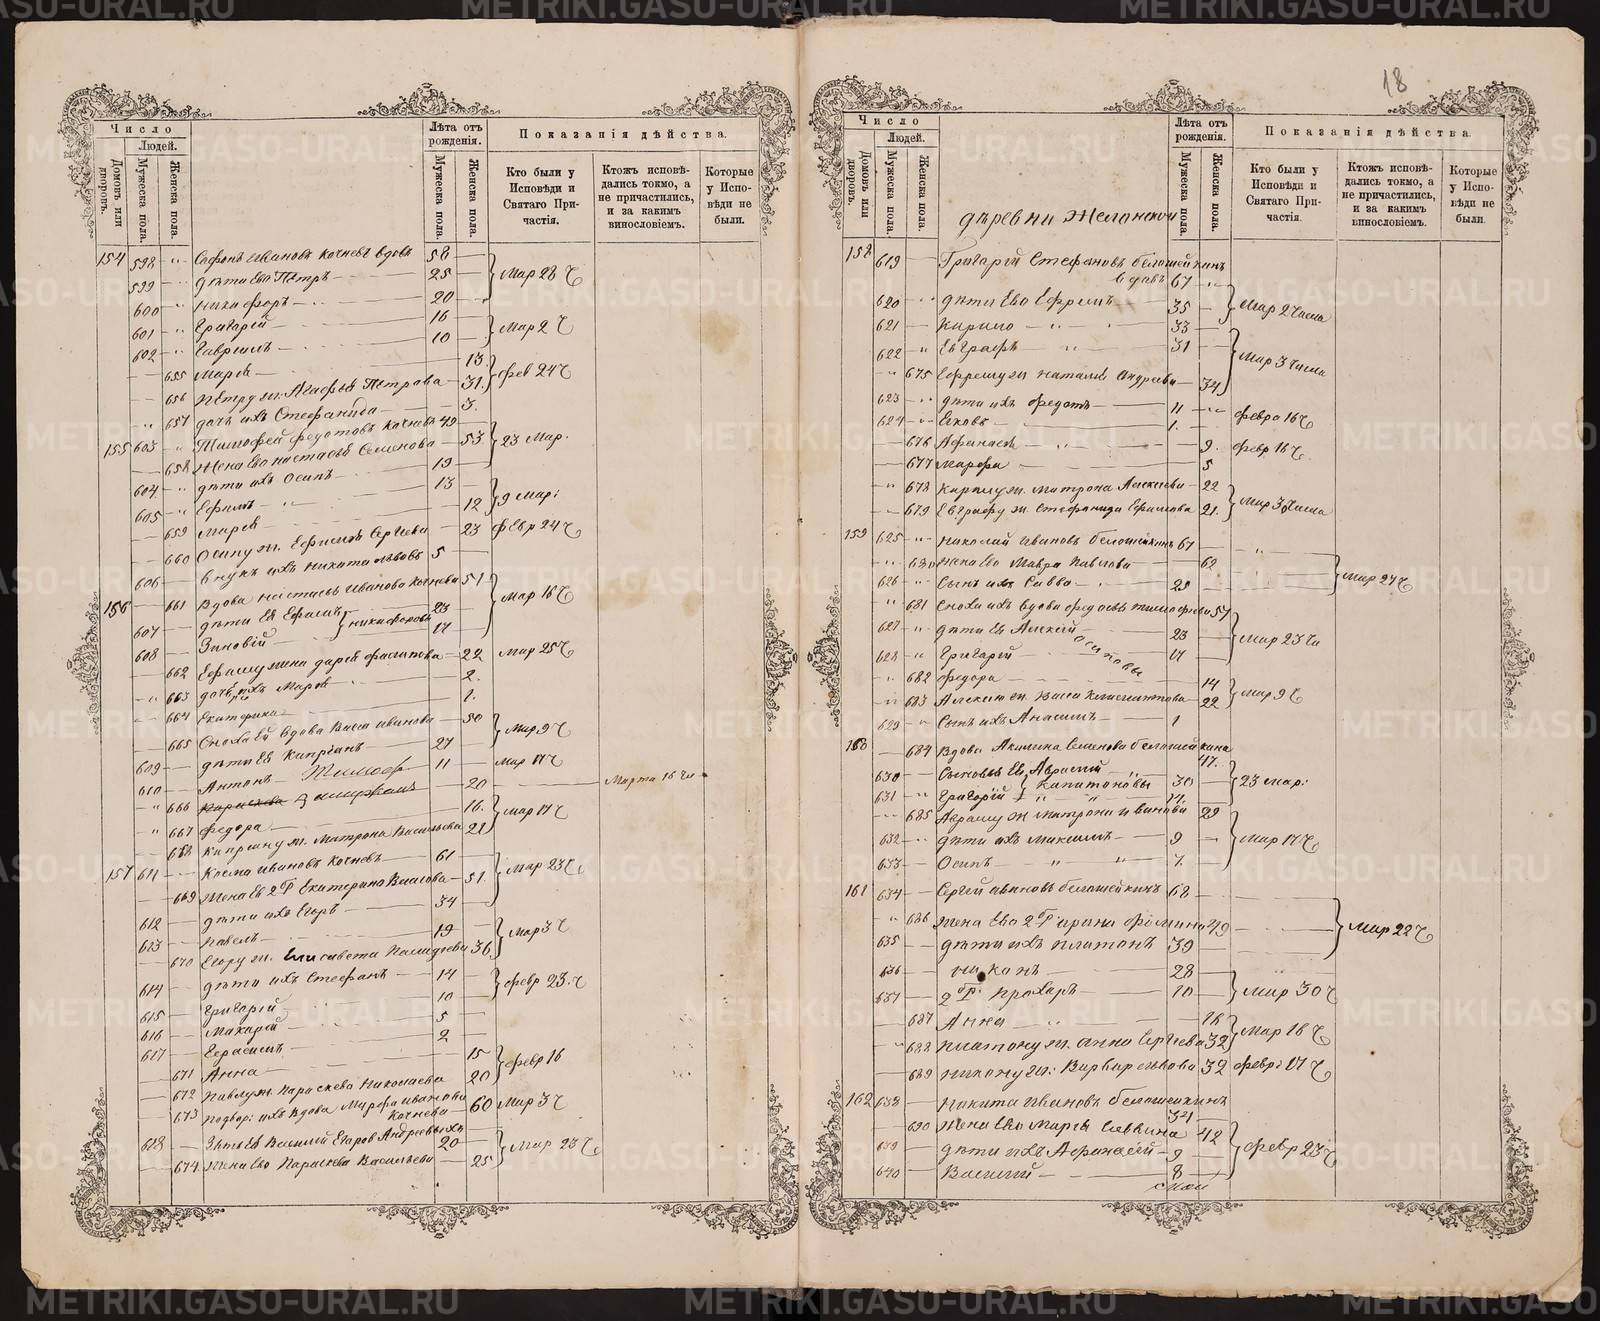 18
Число
Людей.
Домовъ или дворовъ.
Мужеска пола.
Женска пола.
Лѣта отъ рожденія.
Мужеска пола.
Женска пола.
Показанія дѣйства.
Кто были у Исповѣди и Святаго Причастія.
Ктожъ исповѣдались токмо, а не причастились, и за какимъ винословіемъ.
Которые у Исповѣди не были.
154 598 Сафонъ Ивановъ Кочневъ вдовъ 58
599 дѣти его Петръ 25 Мар 28 ч
600 Никифоръ 20
601 Григорій 16 Мар 2 ч
602 Гавріилъ 10
655 Марія 13
656 Петру ж. Агафья Петрова 31 фев 24 ч
657 дочь ихъ Стефанида 3
155 603 Тимофей Федотовъ Кочневъ 49
658 Жена его Настасья Семенова 53 23 Мар.
604 дѣти ихъ Осипъ 19
605 Ефимъ 13 9 Мар:
659 Марія 12
660 Осипу ж. Ефимія Сергіева 23 Февр 24 ч
606 внукъ ихъ Никита 5
156 661 Вдова Настасья Иванова Кочнева 51
607 дѣти ея Ефимъ Никифоровы 23 Мар 16 ч
608 Зиновій 17
662 Ефиму жена Дарья Филипова 22 Мар 25 ч
663 дочь ихъ Марія 2
664 Екатерина 1
665 Сноха ей вдова Васса Иванова 50
609 дѣти ея Кипріанъ 27 Мар 9 ч
610 Антонъ 11 Мар 17 ч
666 20 Марта 16 чи
667 Федора 16 Мар 17 ч
668 Кипріану ж. Матрона Васильева 21
157 611 Козма Ивановъ Кочневъ 61
669 Жена ев 2 г Екатерина Власова 51 Мар 23 ч
612 дѣти ихъ Егоръ 34
613 Павелъ 19 Мар 3 ч
670 Егору ж. Елисавета 36
614 дѣти ихъ Стефанъ 14 февр 23 ч
615 Григорій 10
616 Макарій 5
617 Герасимъ 2
671 Анна 15 февр 16
672 Павлу ж. Параскева Николаева 20
673 Подвор: ихъ Вдова Марфа Иванова Кочнева 60 Мар 3 ч
618 Зять ея Василій Егоровъ Андреевыхъ 20 Мар 23 ч
674 Жена его Параскева Васильева 25
Число
Людей.
Домовъ или дворовъ.
Мужеска пола.
Женска пола.
Лѣта отъ рожденія.
Мужеска пола.
Женска пола.
Показанія дѣйства.
Кто были у Исповѣди и Святаго Причастія.
Ктожъ исповѣдались токмо, а не причастились, и за какимъ винословіемъ.
Которые у Исповѣди не были.
деревни Желонской
158 619 Григорій Стефановъ Белошейкинъ
вдовъ 67
620 дѣти его Ефремъ 35 Мар 2 Числа
621 Кирило 33
622 Евграфъ 31 Мар 3 числа
675 Ефрему ж Наталія Андреева 34
623 дѣти ихъ Федотъ 11 февра 16 ч
624 Яковъ 1
676 Афанасія 9 февр 16 ч
677 Марфа 5
678 Кирилу ж. Матрона Алексіева 22 Мар 3 числа
679 Евграфу ж. Стефанида Ефимова 21
159 625 Николай Ивановъ Белошейкинъ 67
680 Жена его Мавра Павлова 62 Мар 27 ч
626 Сынъ ихъ Савва 25
681 Сноха ихъ вдова Федосья Тимофіева 57
627 дѣти ея Алексій Осиповы 23 Мар 23 чи
628 Григорій 17
682 Федора 14 Мар 9 ч
683 Алексію ж. Васса Климентова 22
629 Сынъ ихъ Анисимъ 1
160 684 Вдова Акилина Семенова Белошейкина
47
630 Сыновья ея Аврамій Капитоновы 30 23 мар:
631 Григорій 14
685 Авраму ж Матрона Иванова 29
632 дѣти ихъ Максимъ 9 Мар 17 ч
633 Осипъ 7
161 634 Сергей Ивановъ Белошейкинъ 68
686 жена его 2 г Ирина Фомина 49 Мар 22 ч
635 дѣти ихъ Платонъ 39
636 Никонъ 28
637 2 г. Прохоръ 10 Мар 30 ч
687 Анна 16 Мар 16 ч
688 Платону ж. Анна Сергіева 32
689 Никону ж: Варвара Львова 32 февр: 17 ч
162 638 Никита Ивановъ Белошейкинъ
34
690 Жена его Марья Саввина 42
639 дѣти ихъ Афанасій 9 Февр 23 ч
640 Василий 8